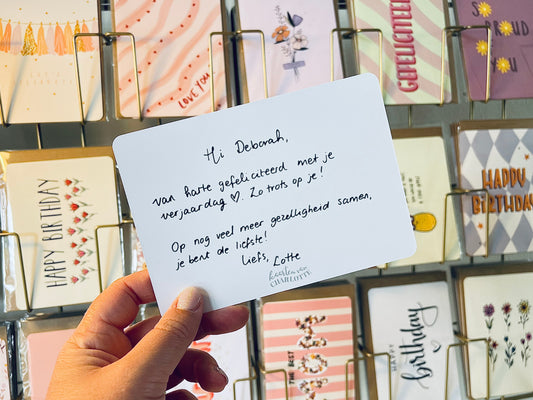 LOVE YOU
GEFELICITEERD
SO PROUD
OF YOU
Hi Deborah,
van harte gefeliciteerd met je
verjaardag ♡. Zo trots op je!
Op nog veel meer gezelligheid samen,
je bent de liefste!
Liefs, Lotte
kaarten van
CHARLOTTE
HAPPY BIRTHDAY
HAPPY
BIRTHDAY
THE BEST
HAPPY
birthday